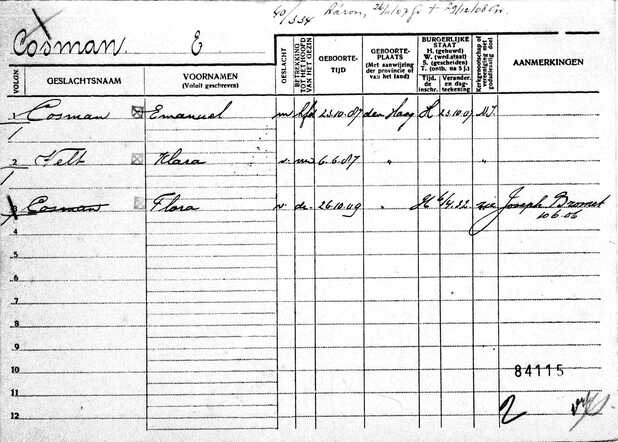 40/5.54 Aäron,
Cosman. E
VOLGN.
GESLACHTSNAAM
VOORNAMEN
(Voluit geschreven)
GESLACHT
BETREKKING TOT HET HOOFD VAN HET GEZIN
GEBOORTE-
TIJD
GEBOORTE-
PLAATS
(Met aanwijzing
der provincie of
van het land)
BURGERLIJKE
STAAT
H. (gehuwd)
W. (wed.staat)
S. (gescheiden)
T. (ontb. na S.)
Tijd. de inschr.
Verander. en dag-teekening
Kerkgenootschap of vereeniging met godsdienstig doel
AANMERKINGEN
1 Cosman Emanuel m hfd 23.10.87 den Haag H 23.10.07 N.I.
2 Velt Klara v. 6.6.87 " "
3 Cosman Flora v. dr. 26.10.09 " H zie Joseph Bromet
10.6.06
4
5
6
7
8
9
10 84115
11
12 2